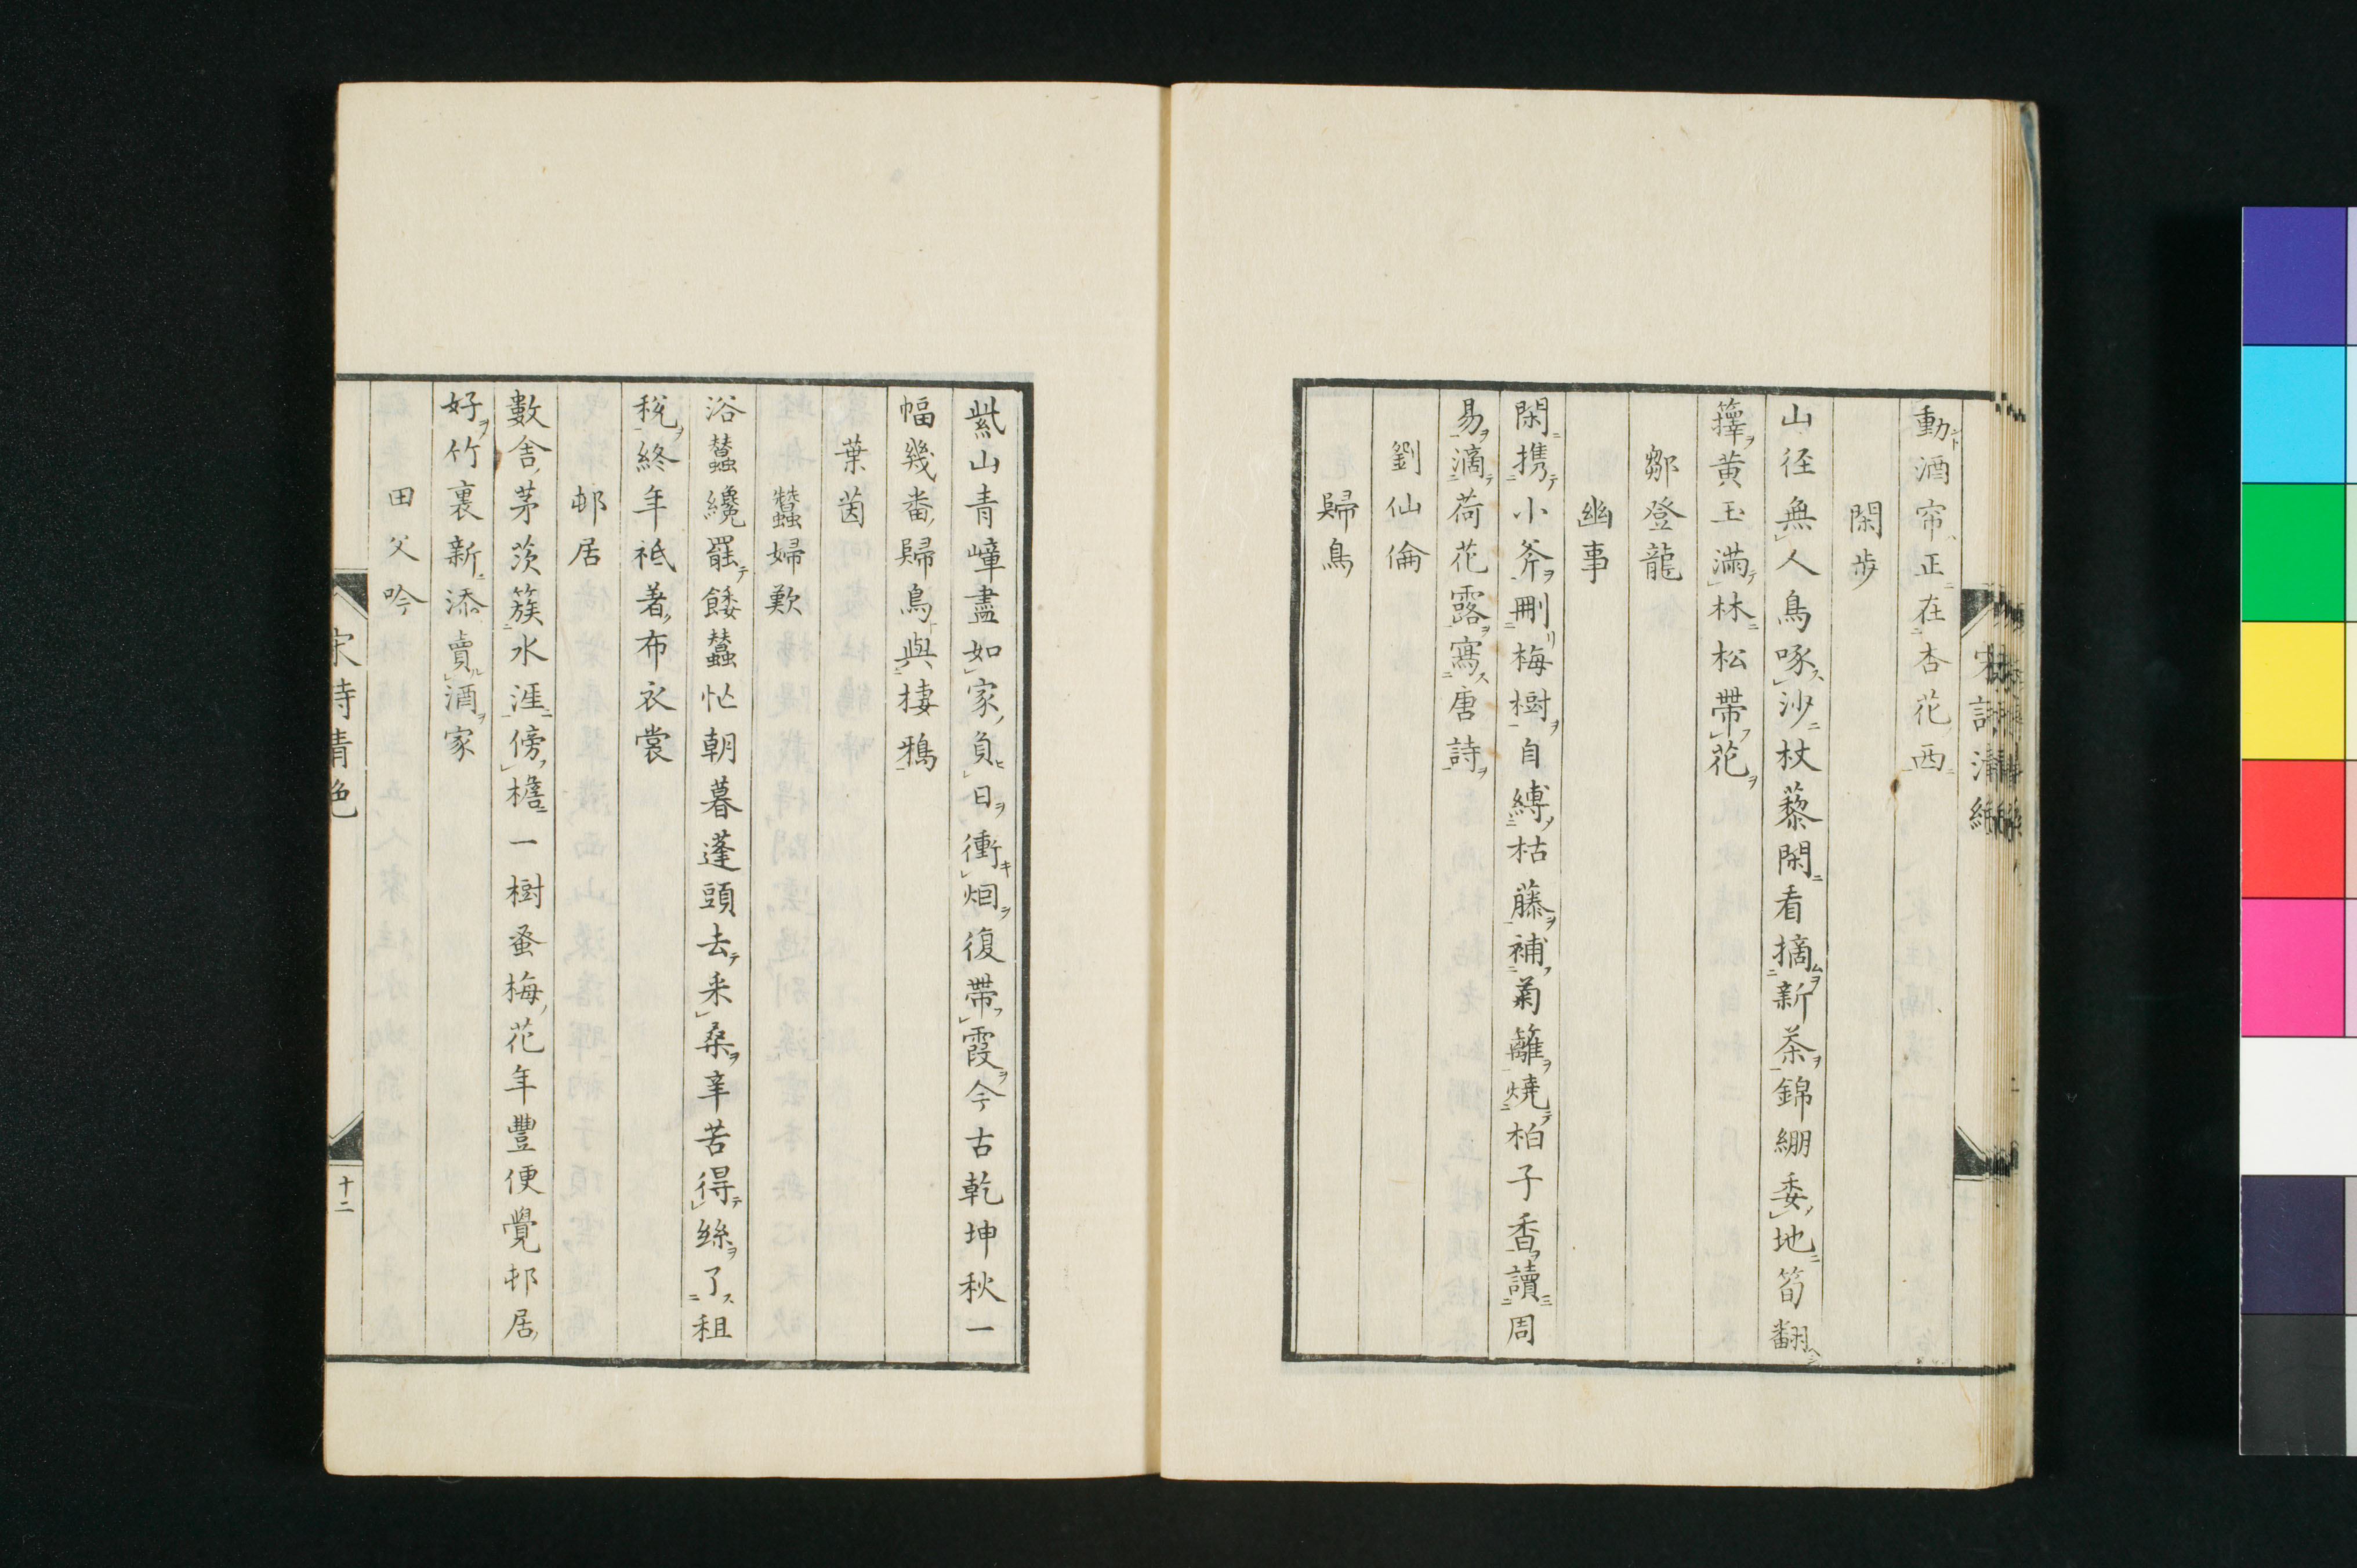 動酒帘正在杏花西
閑歩
山径無人鳥啄沙杖藜閑看摘新茶錦綳委地筍翻
籜黄玉満林松帶花
鄒登龍
幽事
閑携小斧刪梅樹自縛枯藤補菊籬燒柏子香讀周
易滴荷花露寫唐詩
劉仙倫
歸鳥
紫山青嶂盡如家負日衝烟復帶霞今古乾坤秋一
幅幾畨歸鳥與棲鴉
葉茵
蠶婦歎
浴蠶纔罷餧蠶忙朝暮蓬頭去采桑辛苦得絲了租
税終年祗着布衣裳
邨居
數舎茅茨簇水涯傍檐一樹蚤梅花年豐便覺邨居
好竹裏新添賣酒家
田父吟
十二